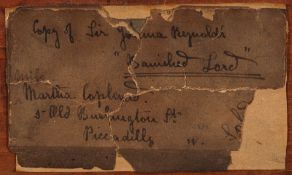 Copy of Sir Joshua Reynolds
"Banished Lord"
Martha
5 Old Burlington St
Piccadilly W.